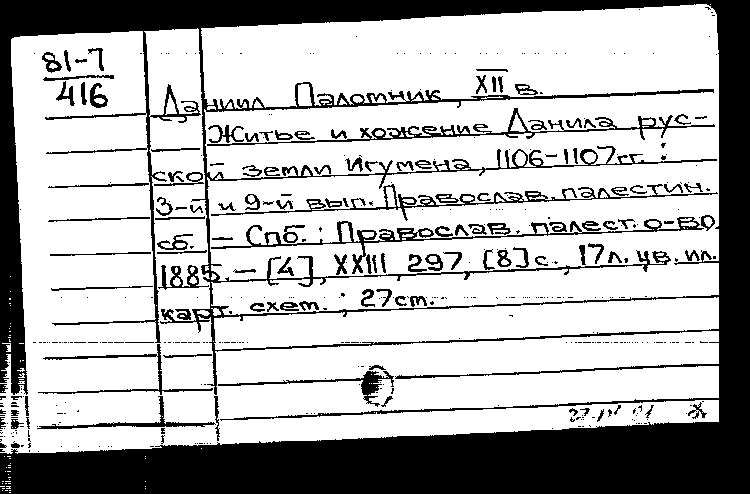 81-7
416
Даниил Паломник, XII в.
Житье и хожение Данила рус-
ской земли игумена, 1106-1107гг. :
3-й и 9-й вып. Православ. палестин.
сб. – Спб. : Православ. палест. о-во
1885. – [4], XXIII, 297, [8] с., 17л. цв. ил.
карт., схем. ; 27см.